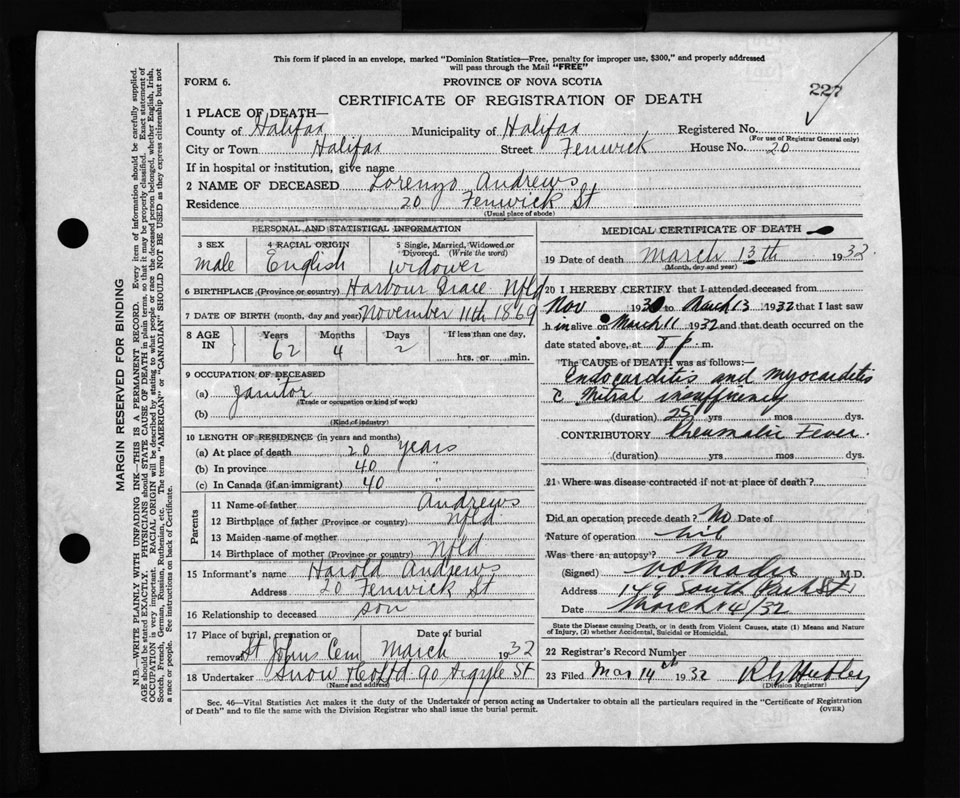 This form if placed in an envelope, marked "Dominion Statistics—Free, penalty for improper use, $300," and properly addressed
will pass through the Mail "FREE"
FORM 6.
PROVINCE OF NOVA SCOTIA
227
CERTIFICATE OF REGISTRATION OF DEATH
1 PLACE OF DEATH—
County of Halifax Municipality of Halifax Registered No.
(For use of Registrar General only)
City or Town Halifax Street Fenwick House No. 20
If in hospital or institution, give name
2 NAME OF DECEASED Lorenzo Andrews
Residence 20 Fenwick St
(Usual place of abode)
PERSONAL AND STATISTICAL INFORMATION
3 SEX 4 RACIAL ORIGIN 5 Single, Married, Widowed or
Divorced. (Write the word)
male English widower
6 BIRTHPLACE (Province or country) Harbour Grace Nfld
7 DATE OF BIRTH (month, day and year) November 11th 1869
8 AGE IN Years Months Days If less than one day,
62 4 2 hrs. or min.
9 OCCUPATION OF DECEASED
(a) Janitor
(Trade or occupation or kind of work)
(b)
(Kind of industry)
10 LENGTH OF RESIDENCE (in years and months)
(a) At place of death 20 years
(b) In province 40 "
(c) In Canada (if an immigrant) 40 "
Parents
11 Name of father Andrews
12 Birthplace of father (Province or country) Nfld
13 Maiden name of mother
14 Birthplace of mother (Province or country) Nfld
15 Informant's name Harold Andrews
Address 20 Fenwick St
16 Relationship to deceased son
17 Place of burial, cremation or removal Date of burial
St Johns Cem March 1932
18 Undertaker Snow & Co Ltd. 90 Argyle St.
(Name and address)
MEDICAL CERTIFICATE OF DEATH
19 Date of death March 13th 1932
(Month, day and year)
20 I HEREBY CERTIFY that I attended deceased from
Nov to March 13 1932 that I last saw
h im alive on March 11 1932 and that death occurred on
date stated above, at 8 p. m.
The CAUSE of DEATH was as follows:—
Endocarditis and myocarditis
c Mitral insufficiency
(duration) 25 yrs mos dys.
CONTRIBUTORY Rheumatic Fever.
(duration) yrs mos dys.
21 Where was disease contracted if not at place of death?
Did an operation precede death? No Date of
Nature of operation nil
Was there an autopsy? No
(Signed) M.D.
Address 149 South Park St
Date March 14/32
State the Disease causing Death, or in death from Violent Causes, state (1) Means and Nature
of Injury, (2) whether Accidental, Suicidal or Homicidal.
22 Registrar's Record Number
23 Filed Mar 14th 1932
(Division Registrar)
Sec. 46—Vital Statistics Act makes it the duty of the Undertaker or person acting as Undertaker to obtain all the particulars required in the "Certificate of Registration
of Death" and to file the same with the Division Registrar who shall issue the burial permit.
(OVER)
MARGIN RESERVED FOR BINDING
N.B.—WRITE PLAINLY WITH UNFADING INK—THIS IS A PERMANENT RECORD. Every item of information should be carefully supplied.
AGE should be stated EXACTLY. PHYSICIANS should STATE CAUSE OF DEATH in plain terms, so that it may be properly classified. Exact statement of
OCCUPATION is very important. RACIAL ORIGIN will be described by stating to what people or race the deceased person belonged, whether English, Irish,
Scotch, French, German, Russian, Ruthenian, etc. The terms "AMERICAN" or "CANADIAN" SHOULD NOT BE USED as they express citizenship but not
a race or people. See instructions on back of Certificate.